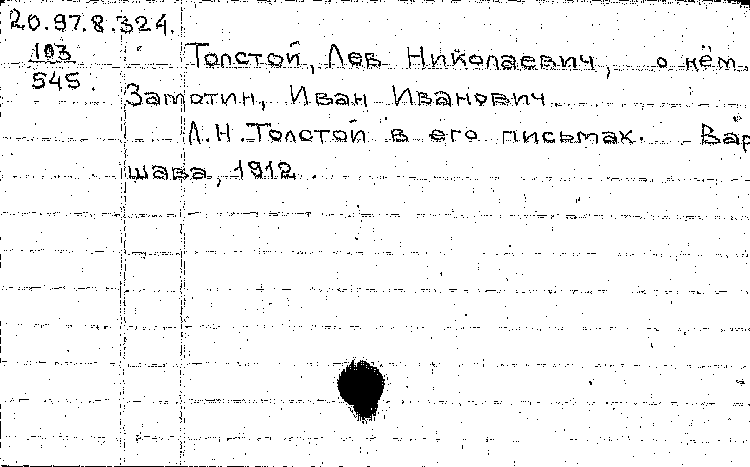 20.97.8.324.
103
545.
Толстой, Лев Николаевич, о нём.
Замотин, Иван Иванович
Л.Н.Толстой в его письмах. Вар
шава, 1912.